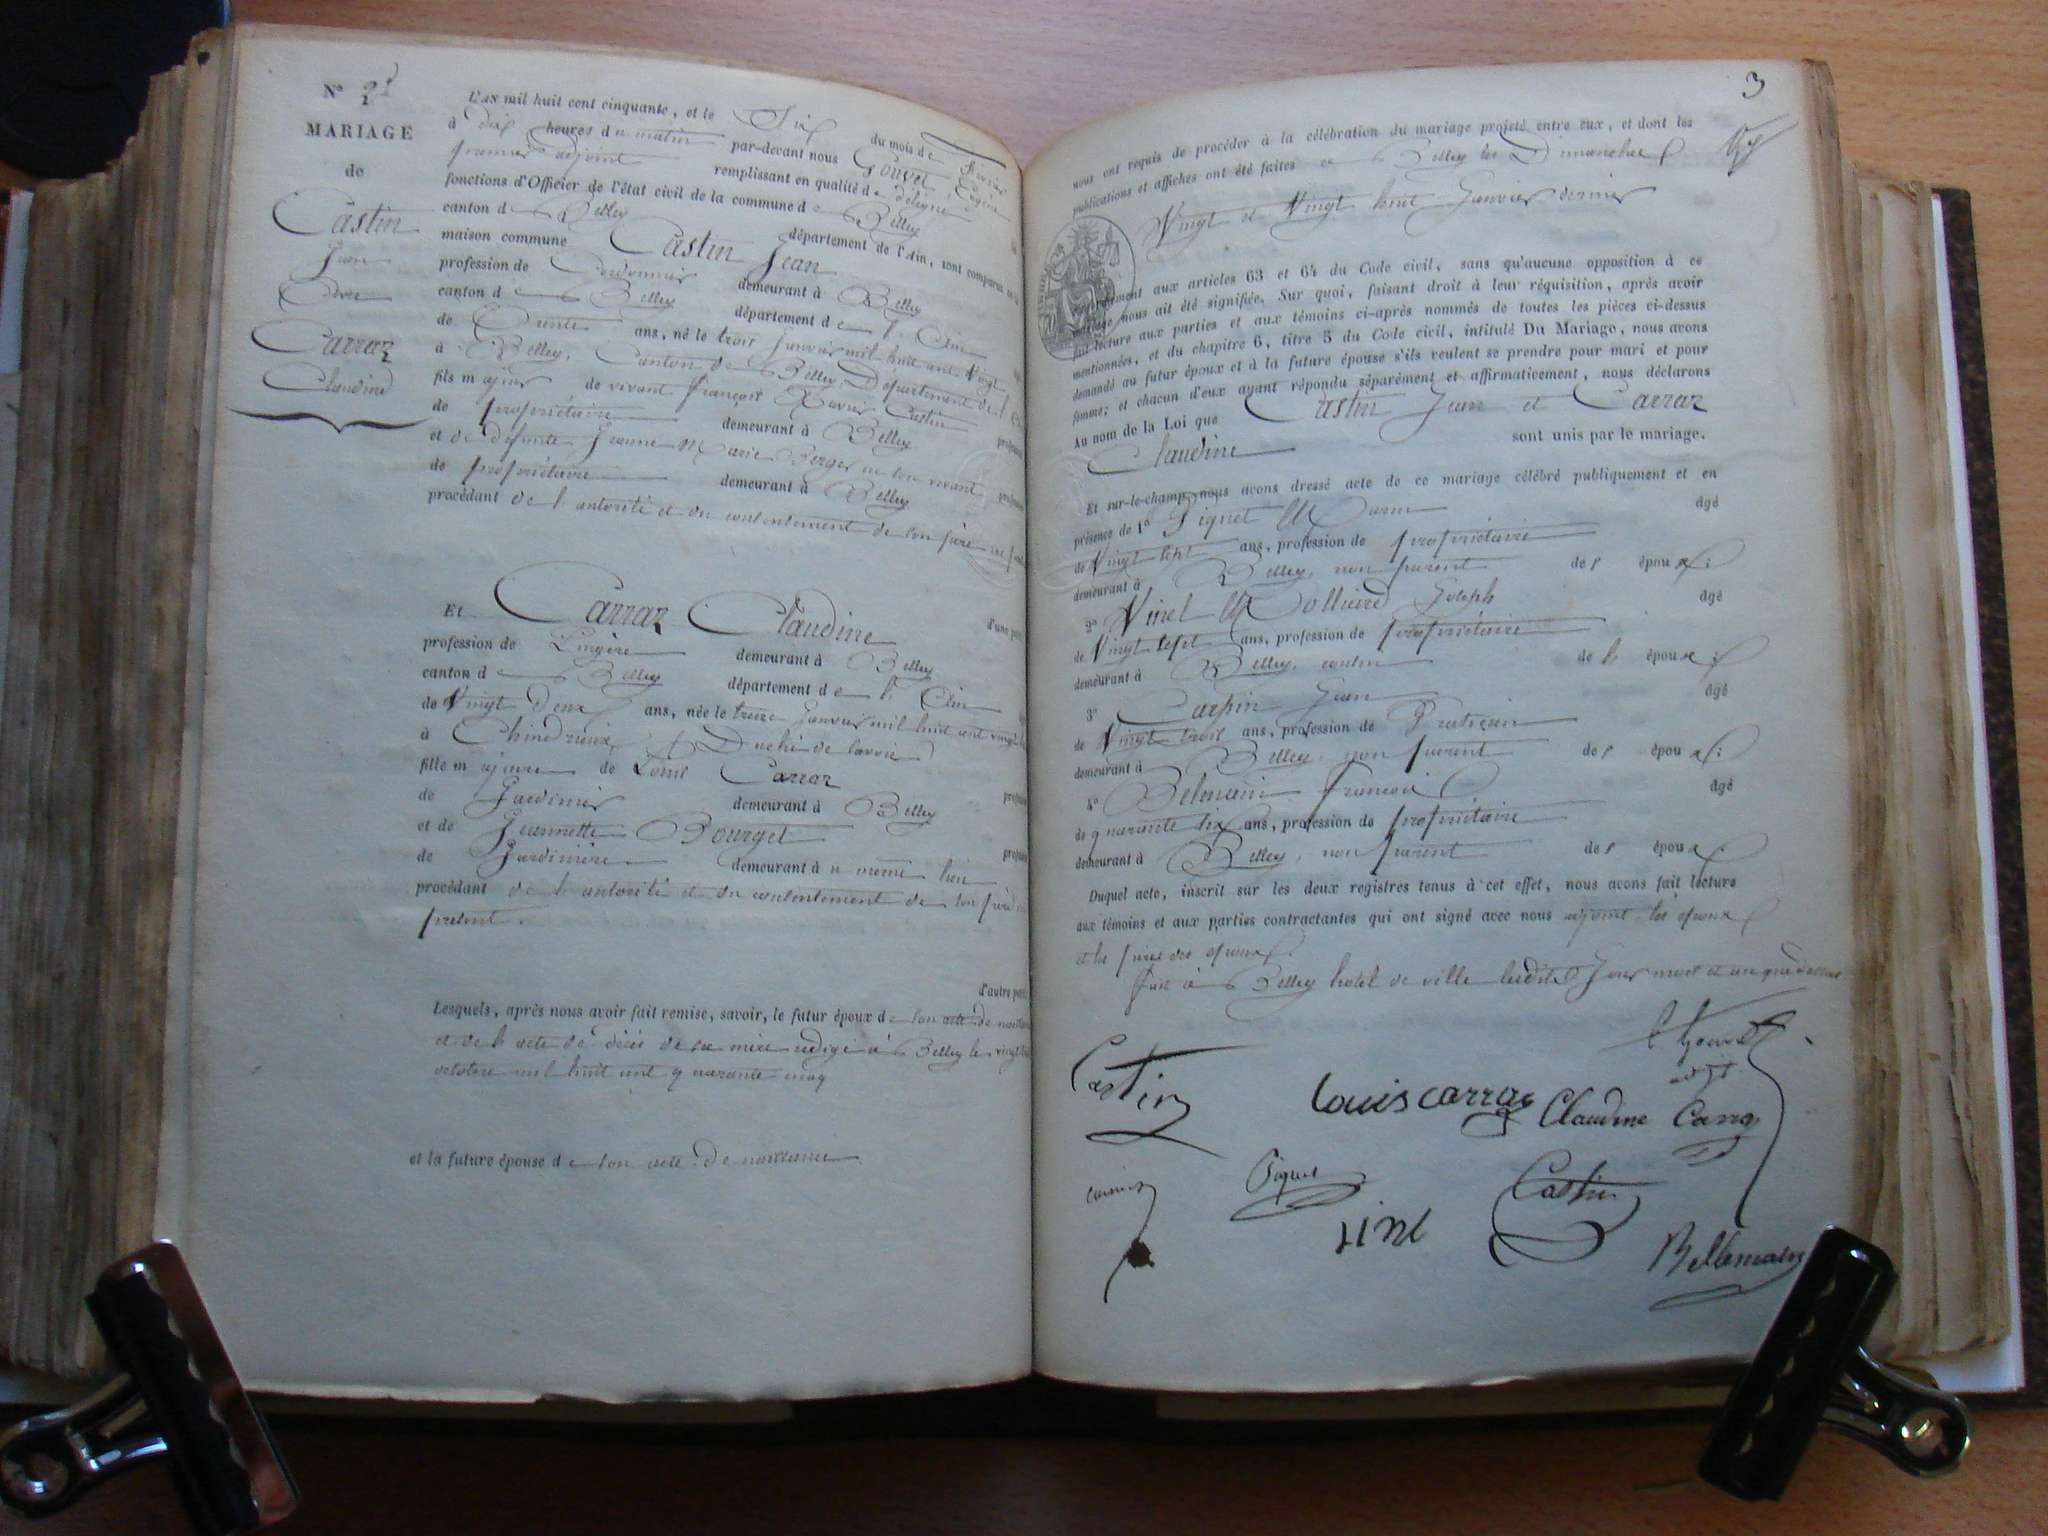 N° 2
MARIAGE
de
Castin
Jean
Avec
Carraz
Claudine
L'AN mil huit cent cinquante, et le Six du mois de Février
à dix heures du matin par-devant nous Gouvet Eugène
premier adjoint remplissant en qualité de délégué
fonctions d'Officier de l'état civil de la commune de Belley
canton de Belley département de l'Ain, sont comparus en la
maison commune Castin Jean
profession de Cordonnier demeurant à Belley
canton de Belley département de l'Ain
de Trente ans, né le trois Janvier mil huit cent vingt
à Belley, Canton de Belley, Département de l'Ain
fils majeur de vivant François Xavier Castin
de propriétaire demeurant à Belley
et de défunte Jeanne Marie Berger en son vivant
de propriétaire demeurant à Belley
procédant de l'autorité et du consentement de son père
d'une part
Et Carraz Claudine
profession de Lingère demeurant à Belley
canton de Belley département de l'Ain
de Vingt deux ans, née le treize Janvier mil huit cent vingt
à Chindrieux, Duché de Savoie
fille majeure de Louis Carraz
de Jardinier demeurant à Belley
et de Jeannette Bourget
de Jardinière demeurant au même lieu
procédant de l'autorité et du consentement de son père
présent.
d'autre part
Lesquels, après nous avoir fait remise, savoir, le futur époux de son acte de naissance
et de l'acte de décès de sa mère rédigé à Belley le vingt
octobre mil huit cent quarante cinq
et la future épouse de son acte de naissance
3
nous ont requis de procéder à la célébration du mariage projeté entre eux, et dont les
publications et affiches ont été faites à Belley les Dimanches
Vingt et Vingt huit Janvier dernier
conformément aux articles 63 et 64 du Code civil, sans qu'aucune opposition à ce
mariage nous ait été signifiée. Sur quoi, faisant droit à leur réquisition, après avoir
fait lecture aux parties et aux témoins ci-après nommés de toutes les pièces ci-dessus
mentionnées, et du chapitre 6, titre 5 du Code civil, intitulé Du Mariage, nous avons
demandé au futur époux et à la future épouse s'ils veulent se prendre pour mari et pour
femme; et chacun d'eux ayant répondu séparément et affirmativement, nous déclarons
Au nom de la Loi que Castin Jean et Carraz
Claudine sont unis par le mariage.
Et sur-le-champ, nous avons dressé acte de ce mariage célébré publiquement et en
présence de 1° Piguet Marin âgé
de Vingt sept ans, profession de propriétaire
demeurant à Belley, non parent des époux;
2° Vinel Mollieird Joseph âgé
de Vingt sept ans, profession de propriétaire
demeurant à Belley, cousin de l'épouse;
3° Carpin Jean âgé
de Vingt trois ans, profession de Praticien
demeurant à Belley, non parent des époux;
4° Belmain François âgé
de quarante six ans, profession de propriétaire
demeurant à Belley, non parent des époux.
Duquel acte, inscrit sur les deux registres tenus à cet effet, nous avons fait lecture
aux témoins et aux parties contractantes qui ont signé avec nous adjoint, les époux
et les pères des époux.
Fait à Belley hôtel de ville lesdits Jour mois et an que dessus
E Gouvet
adjt
Castin
Louis carraz
Claudine Carraz
Piguet
Castin
Vinel
Bellemain